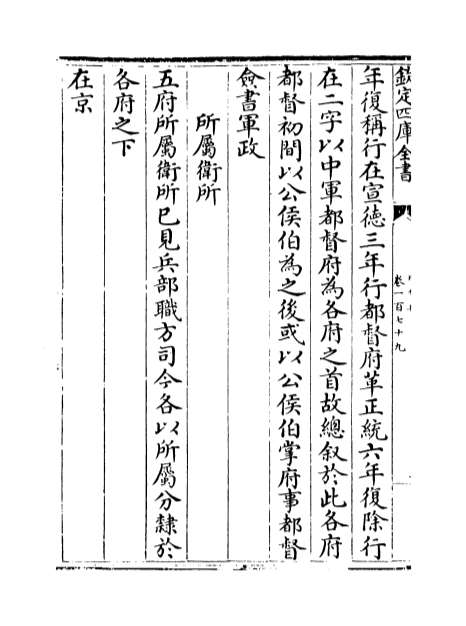 欽定四庫全書
卷一百七十九
年復稱行在宣徳三年行都督府革正統六年復除行
在二字以中軍都督府為各府之首故總叙於此各府
都督初間以公侯伯為之後或以公侯伯掌府事都督
僉書軍政
所屬衛所
五府所屬衛所已見兵部職方司今各以所屬分隸於
各府之下
在京